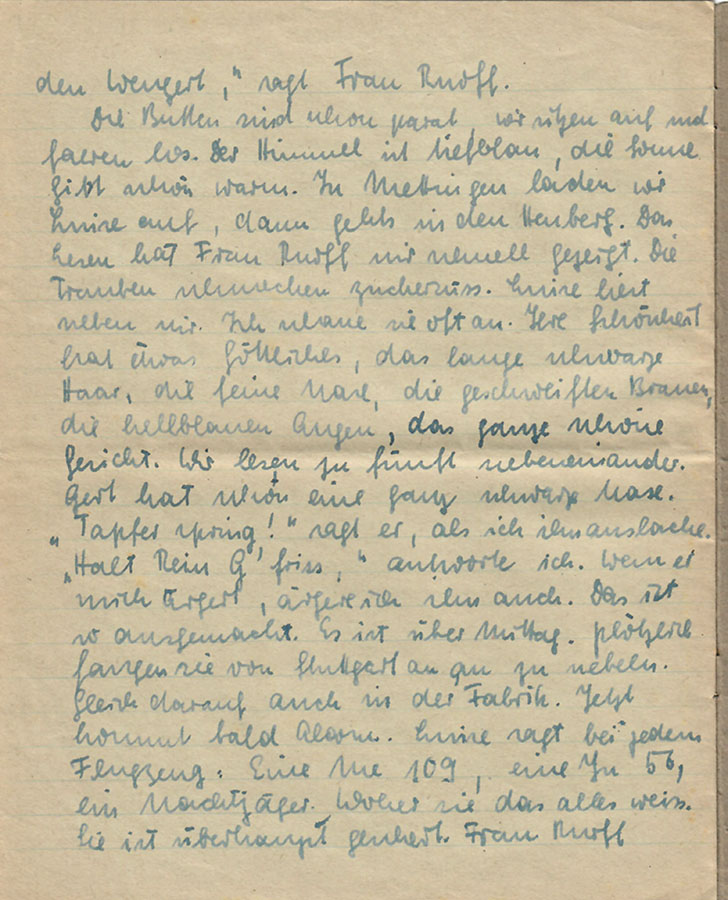 den Wengert," sagt Frau Ruoff.
Die Butten sind schon parat, wir sitzen auf und
faeren los. Der Himmel ist tiefblau, die Sonne
gibt schön warm. In Mettingen laden wir
Luise auf, dann gehts in den Heuberg. Das
Lesen hat Frau Ruoff mir schnell gezeigt. Die
Trauben schmecken zuckersüss. Luise liest
neben mir. Ich schaue sie oft an. Ihre Schönheit
hat etwas Göttliches, das lange schwarze
Haar, die feine Nase, die geschweiften Brauen,
die hellblauen Augen, das ganze schöne
Gesicht. Wir lesen zu fünft nebeneinander.
Gert hat schon eine ganz schwarze Nase.
"Tapfer spring!" sagt er, als ich ihn auslache.
"Halt Dein G'friss," antworte ich. Wenn er
mich ärgert, ärgere ich ihn auch. Das ist
so ausgemacht. Es ist über Mittag. plötzlich
fangen sie von Stuttgart an zu nebeln.
Gleich darauf auch in der Fabrik. Jetzt
kommt bald Alarm. Luise sagt bei jedem
Flugzeug: Eine Me 109, eine Ju 56,
ein Nachtjäger. Woher sie das alles weiss.
Sie ist überhaupt gescheit. Frau Ruoff